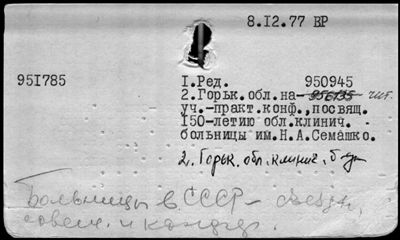 8.12.77 ВР
951785
I.Ред. 950945
2.Горьк.обл.на-
уч.-практ.конф.,посвящ.
150-летию обл.клинич.
больницы им.Н.А.Семашко.
2. Горьк. обл. клинич. б-ца
Больницы в СССР – съезды,
совещ. и конфер.